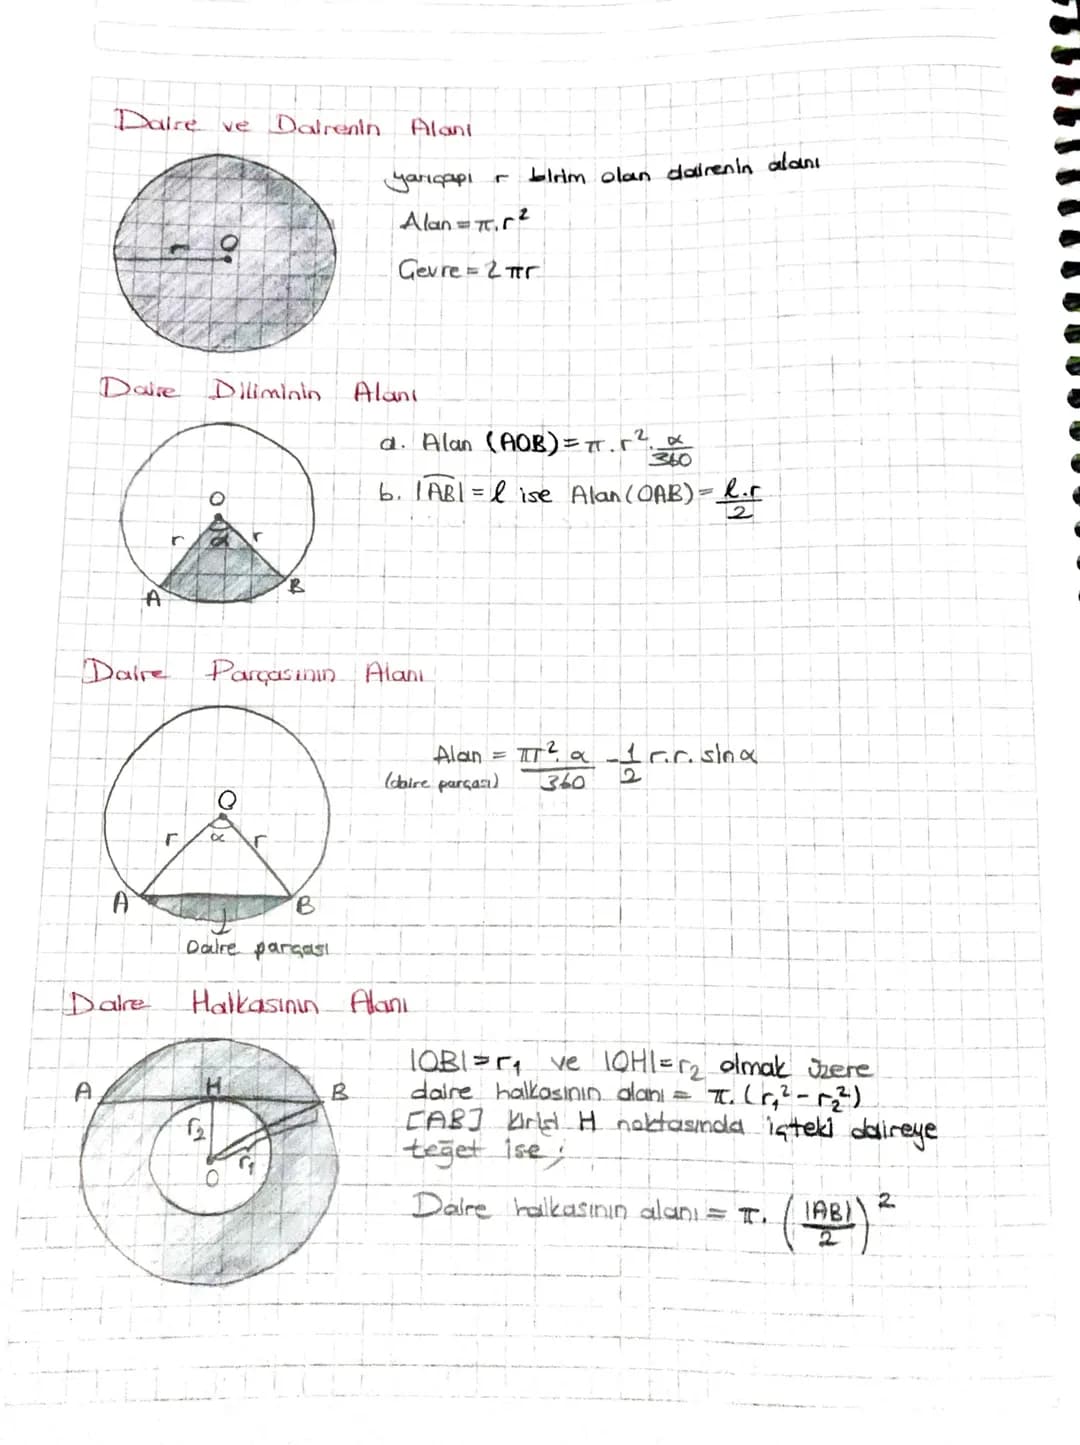 Daire ve Dairenin Alanı
yarıçapı r birim olan dairenin alanı
Alan = π.r²
Çevre = 2πr
r O
Daire Diliminin Alanı
a. Alan (AOB) = π.r².α/360
b. |AB| = l ise Alan(OAB) = l.r/2
O
r α r
A B
Daire Parçasının Alanı
Alan = πr².α/360 - 1/2 r.r.sinα
(daire parçası)
O
r α r
A B
Daire parçası
Daire Halkasının Alanı
|OB| = r₁ ve |OH| = r₂ olmak üzere
daire halkasının alanı = π.(r₁² - r₂²)
[AB] kirişi H noktasında içteki daireye
teğet ise;
Daire halkasının alanı = π.(|AB|/2)²
A H B
r₂
r₁
O